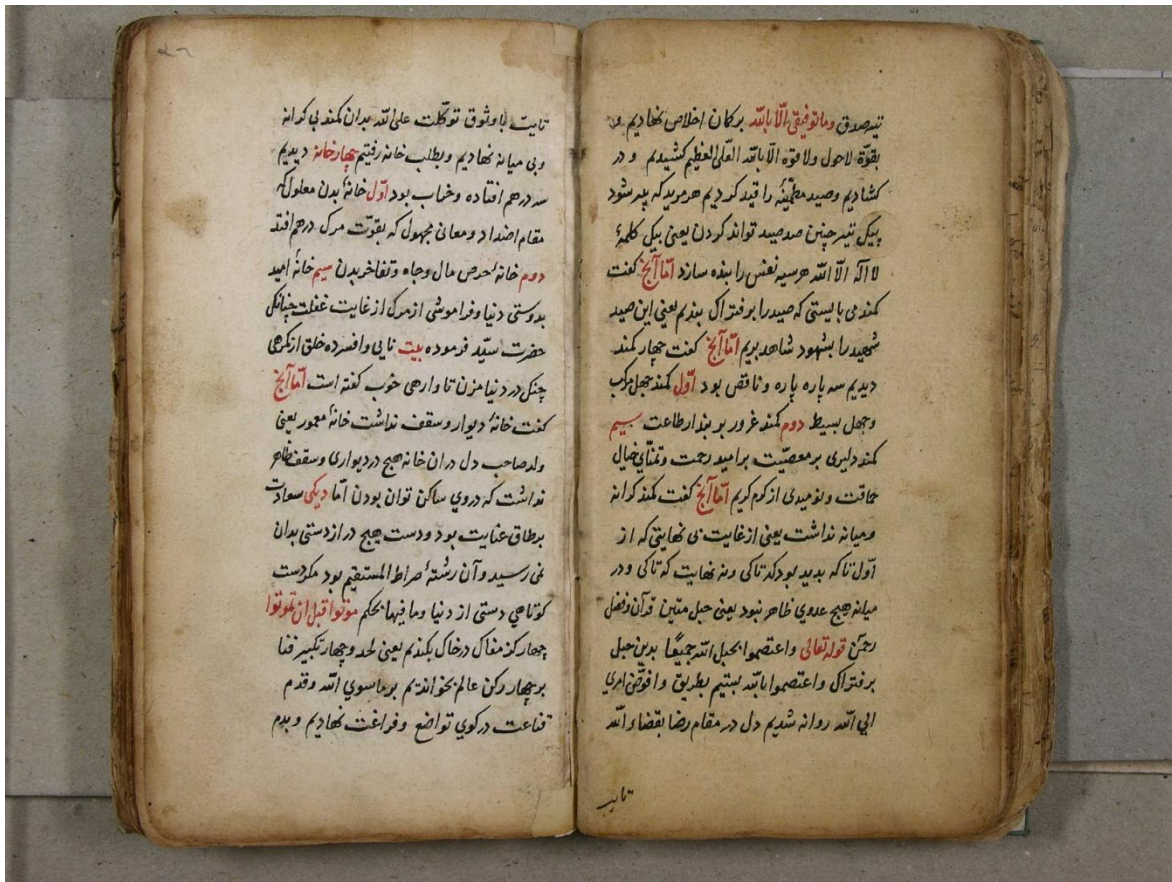 تیر صدق وماتوفیقی الّا بالله بر کمان اخلاص نهادیم و
بقوّة لاحول ولا قوة الّا بالله العلّی العظیم کشیدیم و در
کشادیم وصید مطمئنّه را قید کردیم هر مرید که پیر شود
بیک تیر چنین صد صید تواند کردن یعنی بیک کلمهٔ
لا اله الّا الله هر سیه نفس را بنده سازد امّا آنج کفت
کمند می بایستی که صید را بر فتراک بندیم یعنی این صید
شهید را بشهود شاهد بریم امّا آنج کفت چهار کمند
دیدیم سه پاره پاره و ناقص بود اوّل کمند جهل مرکب
وجهل بسیط دوم کمند غرور بو بندار طاعت سیم
کمند دلیری بر معصیّت بر امید رحمت وتمنّای خیال
حماقت ونومیدی از کرم کریم امّا آنج کفت کمند کرانه
ومیانه نداشت یعنی از غایت بی نهایتی که از
اوّل تا که بدید بود که تا کی ونه نهایت که تا کی ودر
میانه هیچ عدوی ظاهر نبود یعنی حبل متین قرآن وفضل
رحمن قوله تعالی واعتصموا بحبل الله جمیعًا بدین حبل
بر فتراک واعتصموا بالله بستیم بطریق وافوّض امری
الی الله روانه شدیم دل در مقام رضا بقضاء الله
تایب
۵۶
تایت با وثوق توکّلت علی الله بدان کمند بی کرانه
وبی میانه نهادیم وبطلب خانه رفتیم چهار خانه دیدیم
سه در هم افتاده وخراب بود اوّل خانهٔ بدن معلول که
مقام اضداد ومعانی مجهول که بقوّت مرک در هم افتد
دوم خانهٔ حرص مال وجاه وتفاخر بدن سیم خانهٔ امید
بدوستی دنیا وفراموشی از مرک از غایت غفلت چنانکه
حضرت سیّد فرموده بیت تایی وافسرده خلق از کرمی
چنکل در دنیا مزن تا وارهی خوب کفته است امّا آنج
کفت خانهٔ دیوار وسقف نداشت خانهٔ معمور یعنی
ولد صاحب دل در ان خانه هیچ در دیواری وسقف ظاهر
نداشت که در وی ساکن توان بودن امّا دیکی سعادت
بر طاق عنایت بود ودست هیچ درازدستی بدان
نمی رسید وآن رشتهٔ صراط المستقیم بود مکر دست
کوتاهی دستی از دنیا وما فیها بحکم موتوا قبل ان تموتوا
چهار کز مغاک در خاک بکندیم یعنی لحد وچهار تکبیر فنا
بر چهار رکن عالم بخواندیم بر ماسوی الله وقدم
قناعت در کوی تواضع وفراغت نهادیم وبدم